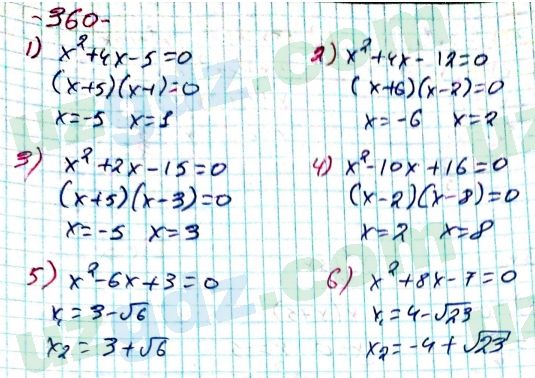 -360-
1) x²+4x-5=0
(x+5)(x-1)=0
x=-5 x=1
2) x²+4x-12=0
(x+6)(x-2)=0
x=-6 x=2
3) x²+2x-15=0
(x+5)(x-3)=0
x=-5 x=3
4) x²-10x+16=0
(x-2)(x-8)=0
x=2 x=8
5) x²-6x+3=0
x₁=3-√6
x₂=3+√6
6) x²+8x-7=0
x₁=4-√23
x₂=-4+√23